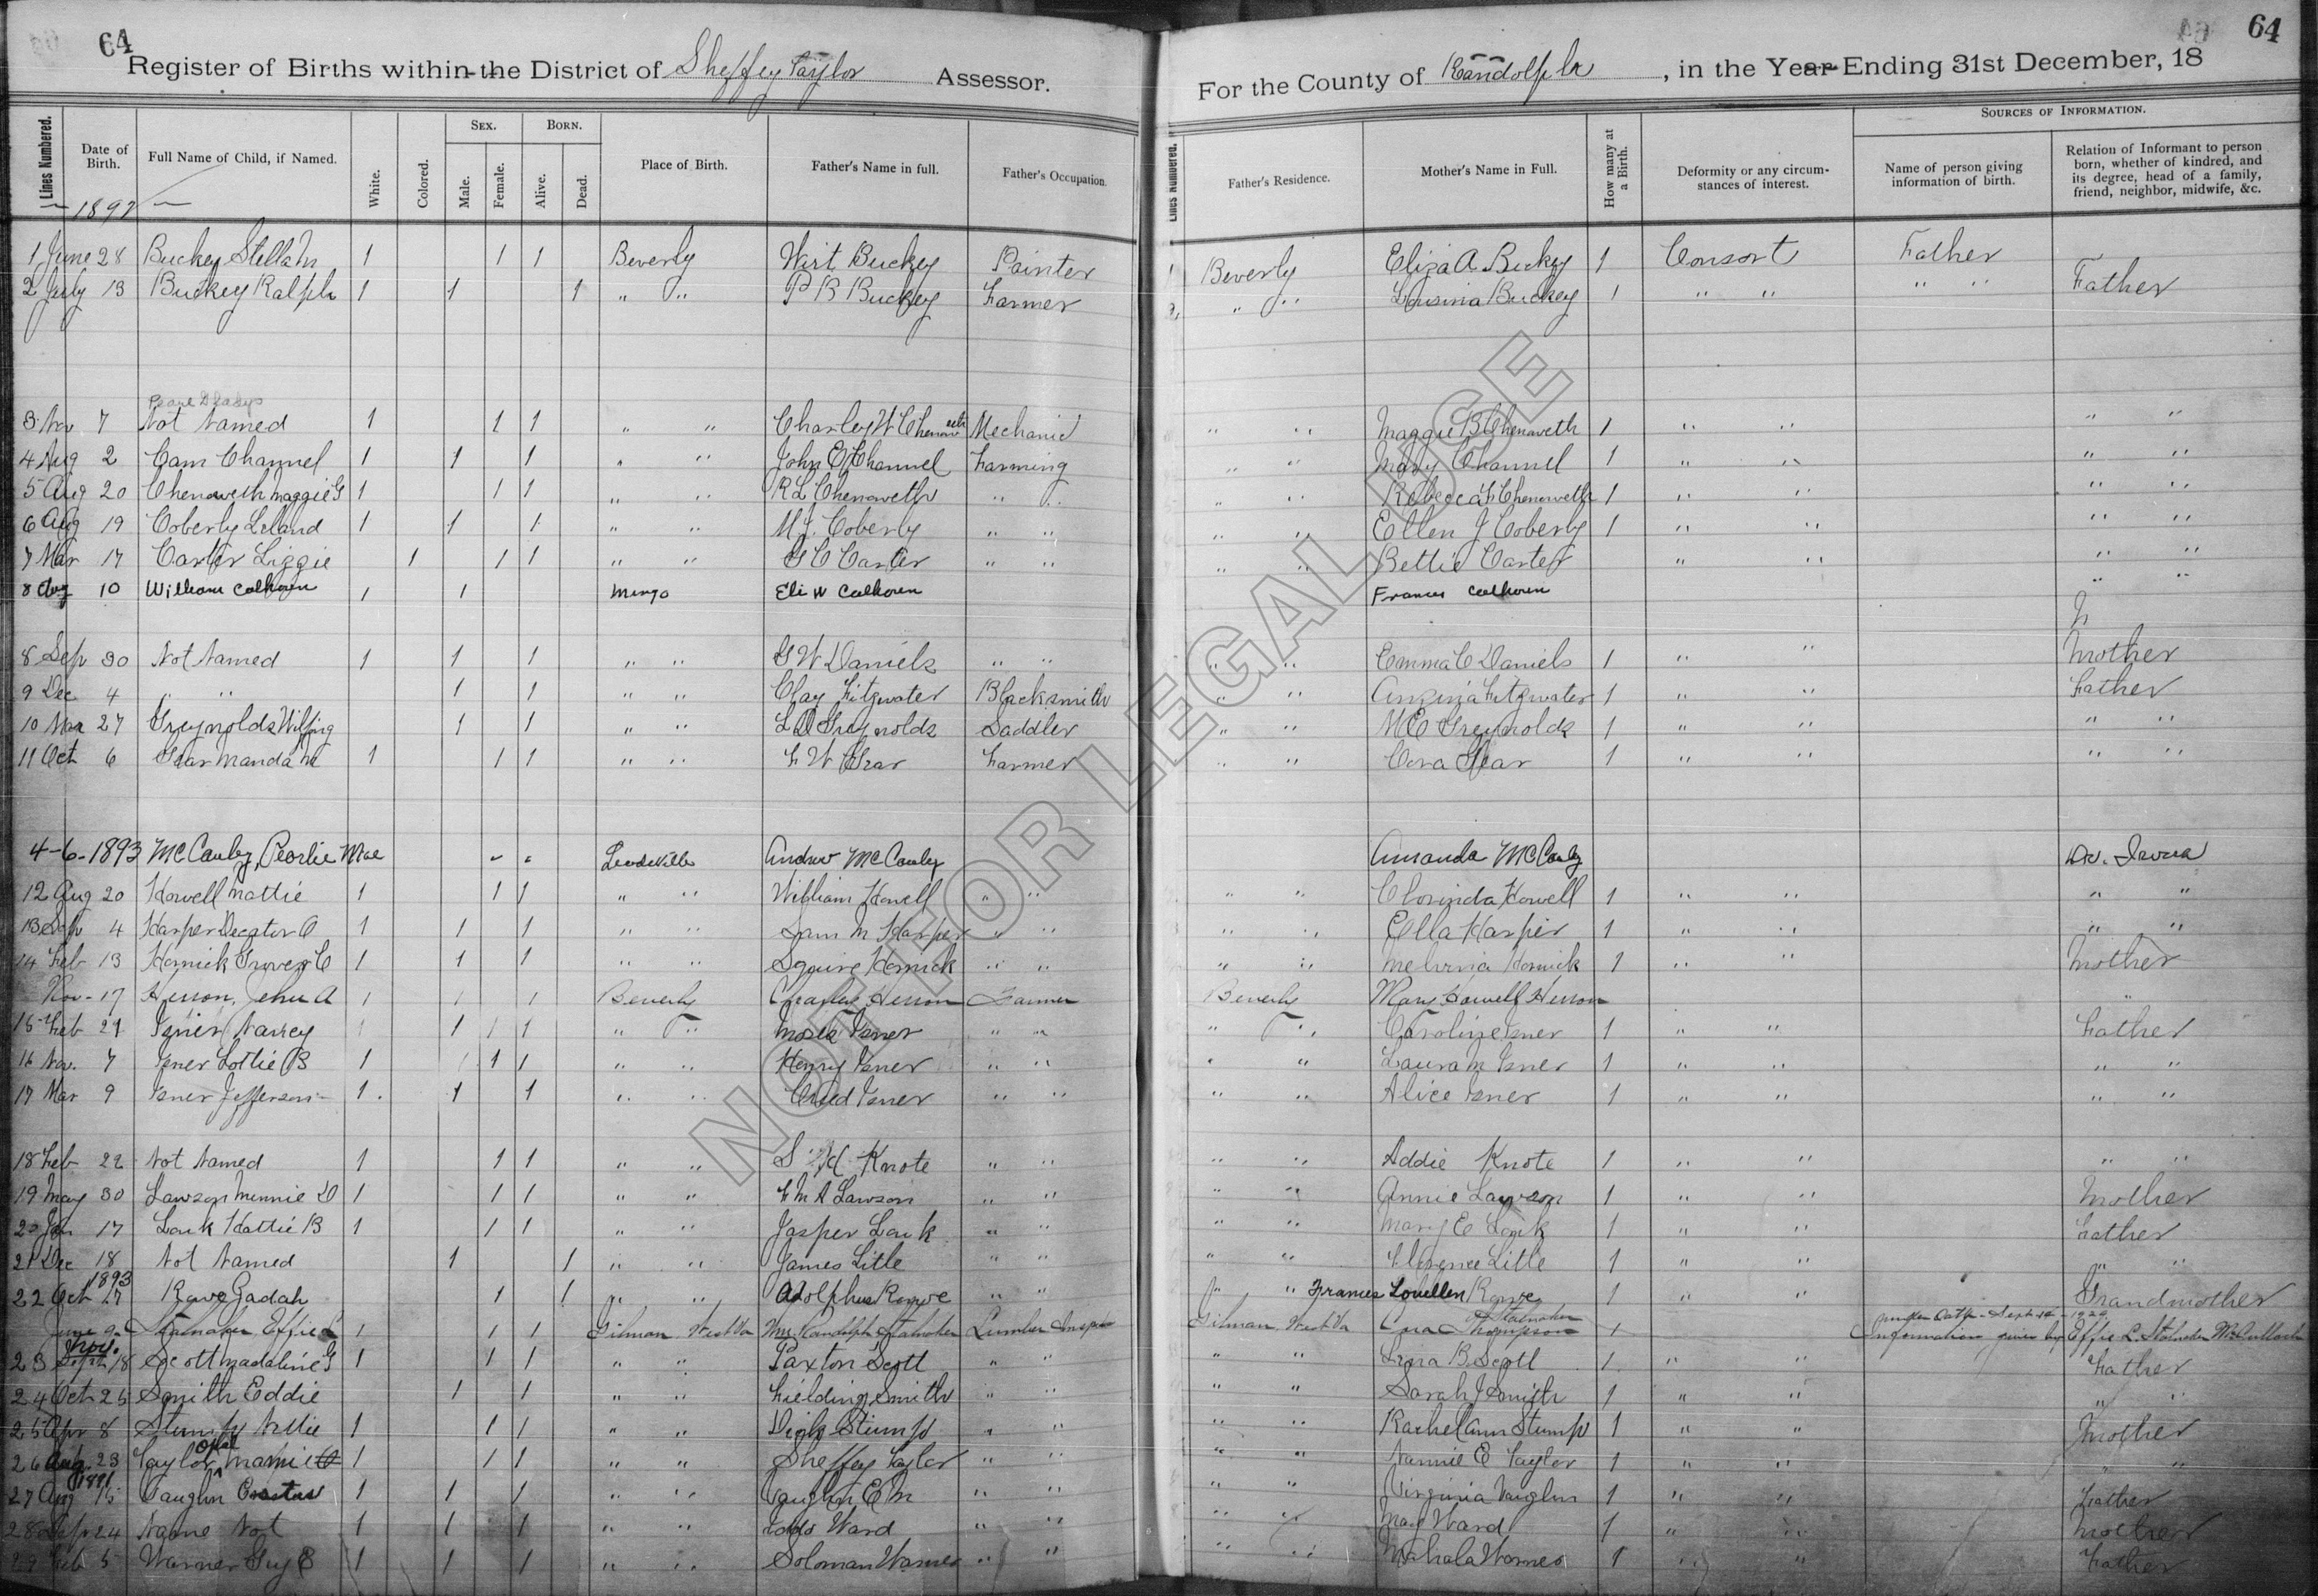 64
64
Register of Births within the District of Sheffey Taylor Assessor. For the County of Randolph, in the Year Ending 31st December, 18
Lines Numbered. Date of Birth. Full Name of Child, if Named. White. Colored. Sex. Male. Female. Born. Alive. Dead. Place of Birth. Father's Name in full. Father's Occupation. Lines Numbered. Father's Residence. Mother's Name in Full. How many at a Birth. Deformity or any circumstances of interest. Sources of Information. Name of person giving information of birth. Relation of Informant to person born, whether of kindred, and its degree, head of a family, friend, neighbor, midwife, &c.
1 June 28 Buckey Stella M 1 1 1 Beverly Wirt Buckey Painter 1 Beverly Eliza A Buckey 1 Consort Father
2 July 13 Buckey Ralph 1 1 1 " " P B Buckey Farmer " " Lousina Buckey 1 " " " " Father
3 Nov 7 Not Named 1 1 1 " " Charley W Chenoweth Mechanic " " Maggie B Chenoweth 1 " " " "
4 Aug 2 Cam Channel 1 1 1 " " John E Channel Farming " " Mary Channel 1 " " " "
5 Aug 20 Chenoweth Maggie G 1 1 1 " " R L Chenoweth " " " " Rebecca F Chenoweth 1 " " " "
6 Aug 19 Coberly Leland 1 1 1 " " M J. Coberly " " " " Ellen J Coberly 1 " " " "
7 Mar 17 Carter Lizzie 1 1 1 " " G C Carter " " " " Bettie Carter " " " "
8 Aug 10 William Calhoun 1 1 Mingo Eli W Calhoun Frances Calhoun " "
8 Sep 30 Not Named 1 1 1 " " G W Daniels " " " " Emma C Daniels 1 " " Mother
9 Dec 4 " " 1 1 " " Clay Fitzwater Blacksmith " " Fitzwater 1 " " Father
10 Mar 27 Greynolds 1 1 " " L D Greynolds Saddler " " M E Greynolds 1 " " " "
11 Oct 6 Gear Manda M 1 1 1 " " F W Gear Farmer " " Cora Gear 1 " " " "
4-6-1893 McCauley, Pearlie Mae Leadsville Andrew McCauley Amanda McCauley Dr.
12 Aug 20 Howell Mattie 1 1 1 " " William Howell " " " " Clorinda Howell 1 " " " "
13 Sep 4 Harper Decator O 1 1 1 " " Sam M Harper " " " " Ella Harper 1 " " " "
14 Feb 13 Hornick Grover C 1 1 1 " " Squire Hornick " " " " Melvina Hornick 1 " " Mother
Nov-17 Herron, John A 1 1 1 Beverly Charles Herron Farmer Beverly Mary Howell Herron "
15 Feb 21 Isner 1 1 " " Isner " " " " Caroline Isner 1 " " Father
16 Nov. 7 Isner Lottie B 1 1 1 " " Henry Isner " " " " Laura M Isner 1 " " " "
17 Mar 9 Isner Jefferson 1 1 1 " " Creed Isner " " " " Alice Isner 1 " " " "
18 Feb 22 Not Named 1 1 1 " " S H Knote " " " " Addie Knote 1 " " " "
19 May 30 Lawson Minnie D 1 1 1 " " F M A Lawson " " " " Annie Lawson 1 " " Mother
20 Jan 17 Louk Hattie B 1 1 1 " " Jasper Louk " " " " Mary E Louk 1 " " Father
21 Dec 18 Not Named 1 1 " " James Litle " " " " Florence Litle 1 " " " "
22 Oct 17 1893 Rowe Gadah 1 1 " " Adolphus Rowe " " " " Frances Louellen Rowe 1 " " Grandmother
June 9 Stalnaker Effie L 1 1 Gilman West Va Wm. Randolph Stalnaker Lumber Gilman West Va Thompson Stalnaker 1 Information given by Effie L. Stalnaker McCulloch
23 Nov. 18 Scott Madaline G 1 1 1 " " Paxton Scott " " " " Lena B Scott 1 " " Father
24 Oct 25 Smith Eddie 1 1 " " Fielding Smith " " " " Sarah J Smith 1 " " " "
25 Apr 8 Stump Nellie 1 1 1 " " Dick Stump " " " " Rachel Ann Stump 1 " " Mother
26 Aug 23 Taylor Opal Mamie 1 1 1 " " Sheffey Taylor " " " " Nannie E Taylor 1 " " " "
27 Aug 15 1891 Vaughn 1 1 1 " " Vaughn E M " " " " Virginia Vaughn 1 " " Father
28 Sep 24 Name Not 1 1 1 " " Ward " " " " May Ward 1 " " Mother
29 Feb 5 Warner Guy 1 1 1 " " Soloman Warner " " " " Mahala Warner 1 " " Father
NOT FOR LEGAL USE